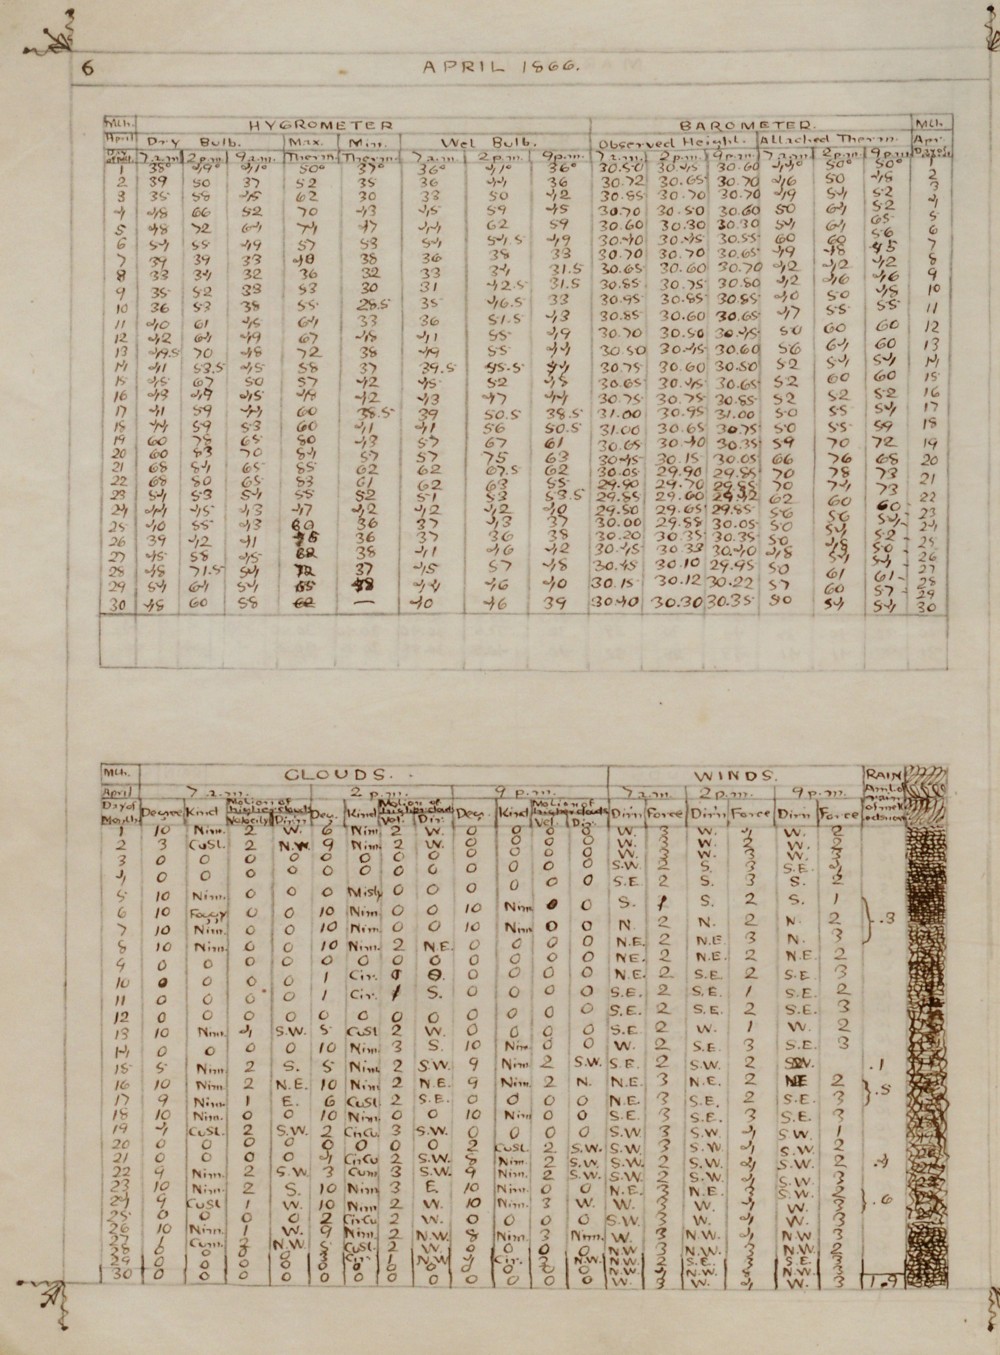 6 APRIL 1866.
Mth. HYGROMETER BAROMETER. Mth.
April Dry Bulb. Max. Min. Wet Bulb. Observed Height. Attached Therm. Apr.
Day of Mth. 7 a.m. 2 p.m. 9 a.m. Therm. Therm. 7 a.m. 2 p.m. 9 p.m. 7 a.m. 2 p.m. 9 p.m. 7 a.m. 2 p.m. 9 p.m. Days of
1 35° 49° 41° 50° 37° 36° 41° 36° 30.50 30.45 30.60 44° 50° 50° 1
2 39 50 37 52 35 36 44 36 30.72 30.65 30.70 46 50 48 2
3 35 58 45 62 30 33 50 42 30.85 30.70 30.70 49 54 52 3
4 48 66 52 70 43 45 59 45 30.70 30.50 30.60 50 64 52 4
5 48 72 64 74 47 44 62 59 30.60 30.30 30.30 54 64 65 5
6 54 55 49 57 53 54 54.5 49 30.40 30.45 30.55 60 60 56 6
7 39 39 33 40 38 36 38 33 30.70 30.70 30.65 49 48 45 7
8 33 34 32 36 32 33 34 31.5 30.65 30.60 30.70 42 42 42 8
9 35 52 33 53 30 31 42.5 31.5 30.85 30.75 30.80 42 46 46 9
10 36 53 38 55 28.5 35 46.5 33 30.95 30.85 30.85 40 50 48 10
11 40 61 45 64 33 36 51.5 43 30.85 30.60 30.65 47 55 55 11
12 42 64 49 67 45 41 55 49 30.70 30.50 30.45 50 60 60 12
13 49.5 70 48 72 38 49 55 44 30.50 30.45 30.60 56 64 60 13
14 41 53.5 45 58 37 39.5 45.5 44 30.75 30.60 30.50 52 54 54 14
15 45 67 50 57 42 45 52 45 30.65 30.45 30.65 52 60 60 15
16 43 49 45 48 42 43 47 44 30.75 30.75 30.85 52 52 52 16
17 41 59 44 60 38.5 39 50.5 38.5 31.00 30.95 31.00 50 55 54 17
18 44 59 53 60 41 41 56 50.5 31.00 30.65 30.75 50 55 59 18
19 60 78 65 80 43 57 67 61 30.65 30.40 30.35 59 70 72 19
20 60 83 70 84 57 57 75 63 30.45 30.15 30.05 66 76 68 20
21 68 84 65 85 62 62 67.5 62 30.05 29.90 29.85 70 78 73 21
22 68 80 65 83 61 62 63 55 29.90 29.70 29.55 70 74 73 22
23 54 53 54 55 52 51 53 53.5 29.55 29.60 29.42 62 60 60 23
24 44 45 43 47 42 42 42 40 29.50 29.65 29.85 56 56 54 24
25 40 55 43 60 36 37 43 37 30.00 29.55 30.05 50 54 52 25
26 39 42 41 36 37 36 38 30.20 30.35 30.35 50 48 50 26
27 45 58 45 62 38 41 46 42 30.45 30.33 30.40 48 54 54 27
28 48 71.5 54 72 37 45 57 48 30.45 30.10 29.95 50 61 61 28
29 54 64 54 65 48 44 46 40 30.15 30.12 30.22 57 60 57 29
30 45 60 58 62 — 40 46 39 30.40 30.30 30.35 50 54 54 30
Mth. CLOUDS. WINDS. RAIN
April 7 a.m. 2 p.m. 9 p.m. 7 a.m. 2 p.m. 9 p.m. Amt of
Day of Month Degree Kind Motion of higher clouds Velocity Dir'n Deg. Kind Motion of higher clouds Vel. Dir. Deg. Kind Motion of higher clouds Vel. Dir. Dir'n Force Dir'n Force Dir'n Force
1 10 Nim. 2 W. 6 Nim 2 W. 0 0 0 0 W. 3 W. 4 W. 2
2 3 CuSt. 2 N.W. 9 Nim 2 W. 0 0 0 0 W. 3 W. 2 W. 2
3 0 0 0 0 0 0 0 0 0 0 0 0 W. 3 W. 3 W. 3
4 0 0 0 0 0 0 0 0 0 0 0 0 S.W. 2 S. 3 S.E. 4
5 10 Nim. 0 0 0 Misty 0 0 0 0 0 0 S.E. 2 S. 3 S. 2
6 10 Foggy 0 0 10 Nim 0 0 10 Nim 0 0 S. 1 S. 2 S. 1
7 10 Nim. 0 0 10 Nim. 0 0 10 Nim 0 0 N. 2 N. 2 N. 2 .3
8 10 Nim. 0 0 10 Nim. 2 N.E. 0 0 0 0 N.E. 2 N.E. 3 N. 3
9 0 0 0 0 0 0 0 0 0 0 0 0 N.E. 2 N.E. 2 N.E. 2
10 0 0 0 0 1 Cir. 0 0 0 0 0 N.E. 2 S.E. 2 S.E. 3
11 0 0 0 0 1 Cir. 1 S. 0 0 0 0 S.E. 2 S.E. 1 S.E. 2
12 0 0 0 0 0 0 0 0 0 0 0 0 S.E. 2 S.E. 2 S.E. 3
13 10 Nim. 4 S.W. 5 CuSt 2 W. 0 0 0 0 S.E. 2 W. 1 W. 2
14 0 0 0 0 10 Nim. 3 S. 10 Nim 0 0 W. 2 S.E. 3 S.E. 3
15 5 Nim. 2 S. 5 Nim 2 S.W. 9 Nim 2 S.W. S.E. 2 S.W. 2 S.W. .1
16 10 Nim. 2 N.E. 10 Nim 2 N.E. 9 Nim. 2 N. N.E. 3 N.E. 2 NE 2 .5
17 9 Nim. 1 E. 6 CuSt. 2 S.E. 0 0 0 0 N.E. 3 S.E. 2 S.E. 3
18 10 Nim. 0 0 10 Nim 0 0 10 Nim 0 0 S.E. 3 S.E. 3 S.E. 3
19 4 CuSt. 2 S.W. 2 CirCu 3 S.W. 0 0 0 0 S.W. 3 S.W. 4 S.W. 1
20 0 0 0 0 0 0 0 0 2 CuSt. 2 S.W. S.W. 3 S.W. 3 S.W. 2
21 0 0 0 0 4 CirCu 2 S.W. 8 Nim. 2 S.W. S.W. 3 S.W. 4 S.W. 2 .4
22 9 Nim. 2 S.W. 3 Cum 3 S.W. 9 Nim. 2 S.W. S.W. 2 S.W. 3 S.W. 3
23 10 Nim. 2 S. 10 Nim 3 E. 10 Nim. 0 0 N.E. 3 N.E. 3 S.W. 2
24 9 CuSt 1 W. 10 Nim 2 W. 10 Nim. 3 W. W. 3 W. 4 W. 3 .6
25 0 0 0 0 2 CirCu 2 W. 0 0 0 0 S.W. 3 W. 4 W. 3
26 10 Nim. 1 W. 9 Nim. 2 N.W. 8 Nim. 3 Nim. W. 3 N.W. 4 N.W. 3
27 1 Cum. 2 N.W. 5 CuSt. 2 W. 0 0 0 0 N.W 3 N.W. 3 N.W 2
28 0 0 0 0 3 Cir. 1 N.W 4 Cir. 2 N.W. N.W. 2 S.E. 3 S.E. 3
29 0 0 0 0 0 0 0 0 0 0 0 0 N.W 4 N.W. 5 N.W. 3
30 0 0 0 0 0 0 0 0 0 0 0 0 W. 3 W. 4 W. 3 1.9